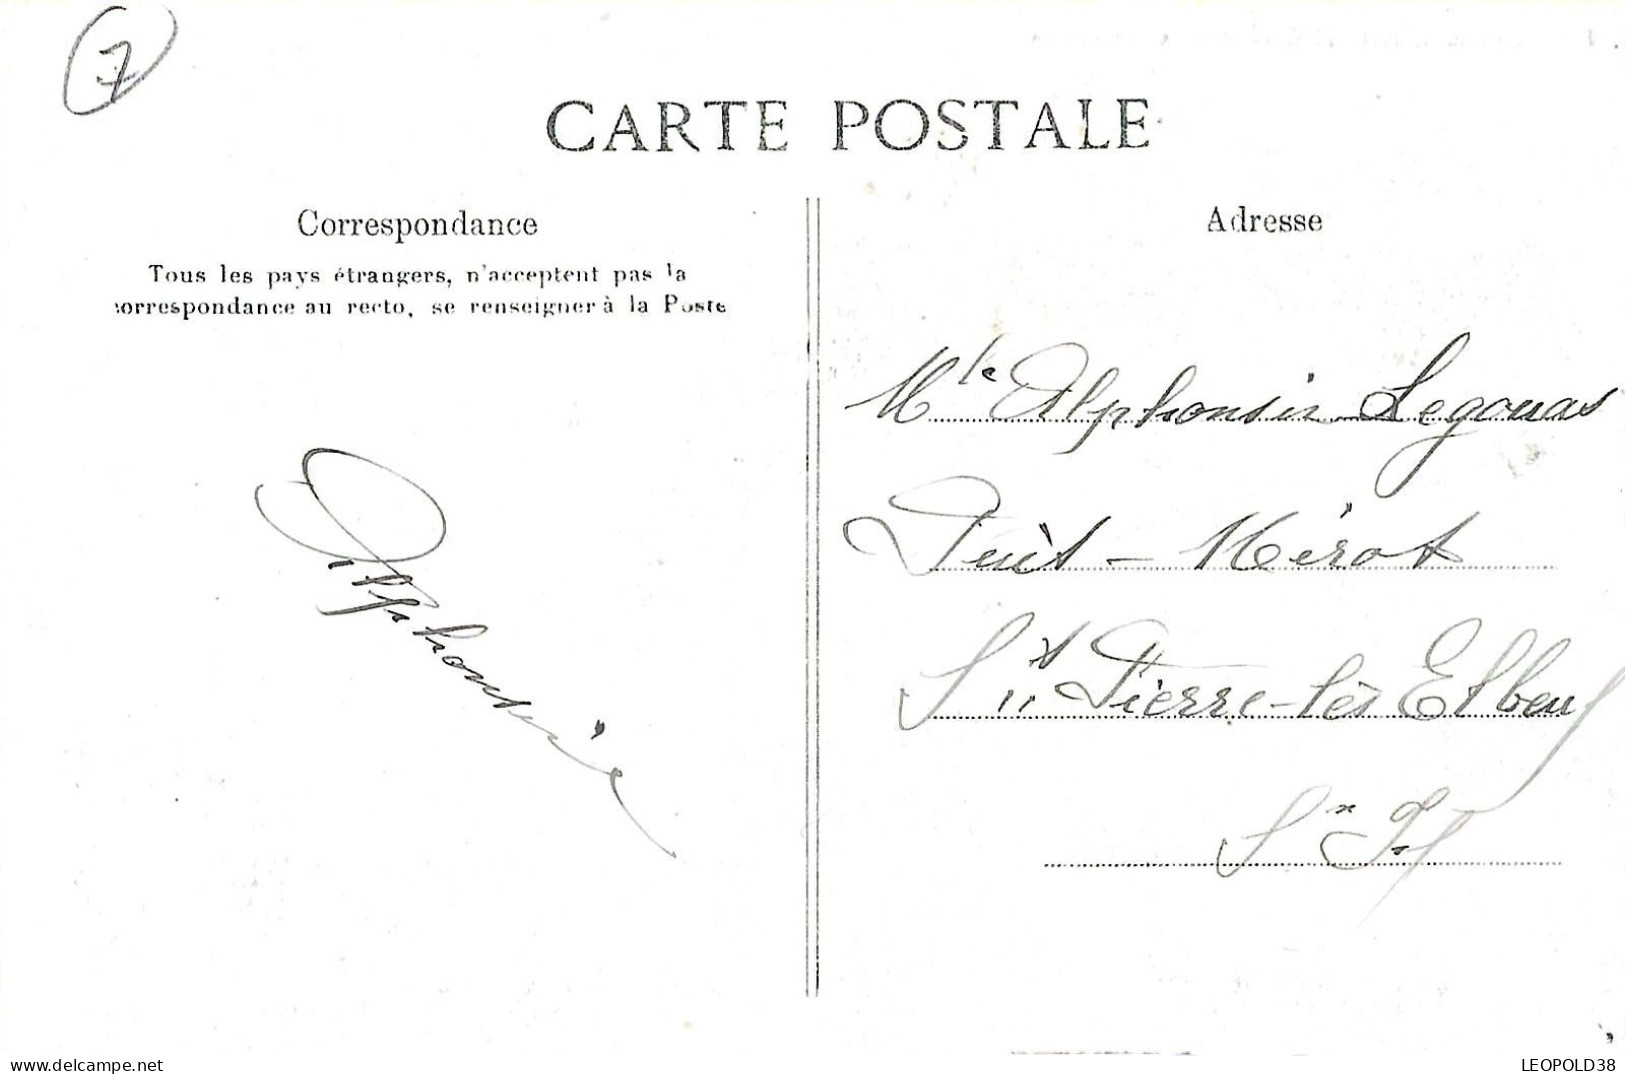 7
CARTE POSTALE
Correspondance
Tous les pays étrangers, n'acceptent pas la
correspondance au recto, se renseigner à la Poste
Alphonsine
Adresse
Mlle Alphonsine Legouas
Puit - Mérot
St Pierre-lès Elbeuf
Sne Infre
delcampe.net
LEOPOLD38